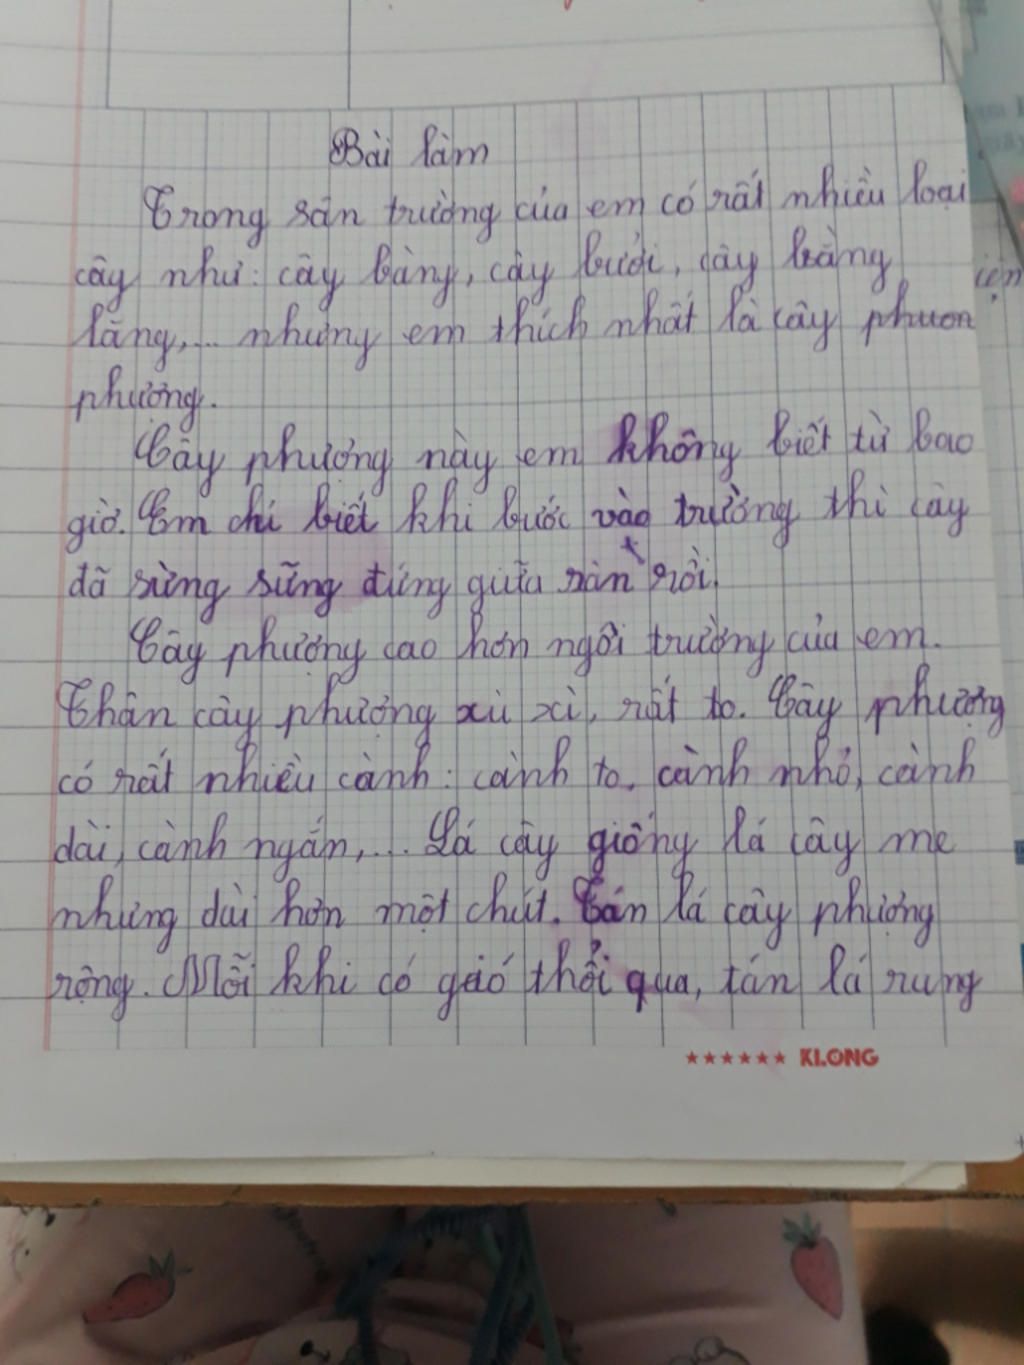 Bài làm
Trong sân trường của em có rất nhiều loại
cây như: cây bàng, cây bưởi, cây bằng
lăng,... nhưng em thích nhất là cây phươn
phượng.
Cây phượng này em không biết từ bao
giờ. Em chỉ biết khi bước vào trường thì cây
đã sừng sững đứng giữa sân rồi.
Cây phượng cao hơn ngôi trường của em.
Thân cây phượng xù xì, rất to. Cây phượng
có rất nhiều cành: cành to, cành nhỏ, cành
dài, cành ngắn,... Lá cây giống lá cây me
nhưng dài hơn một chút. Tán lá cây phượng
rộng. Mỗi khi có gió thổi qua, tán lá rung
KLONG